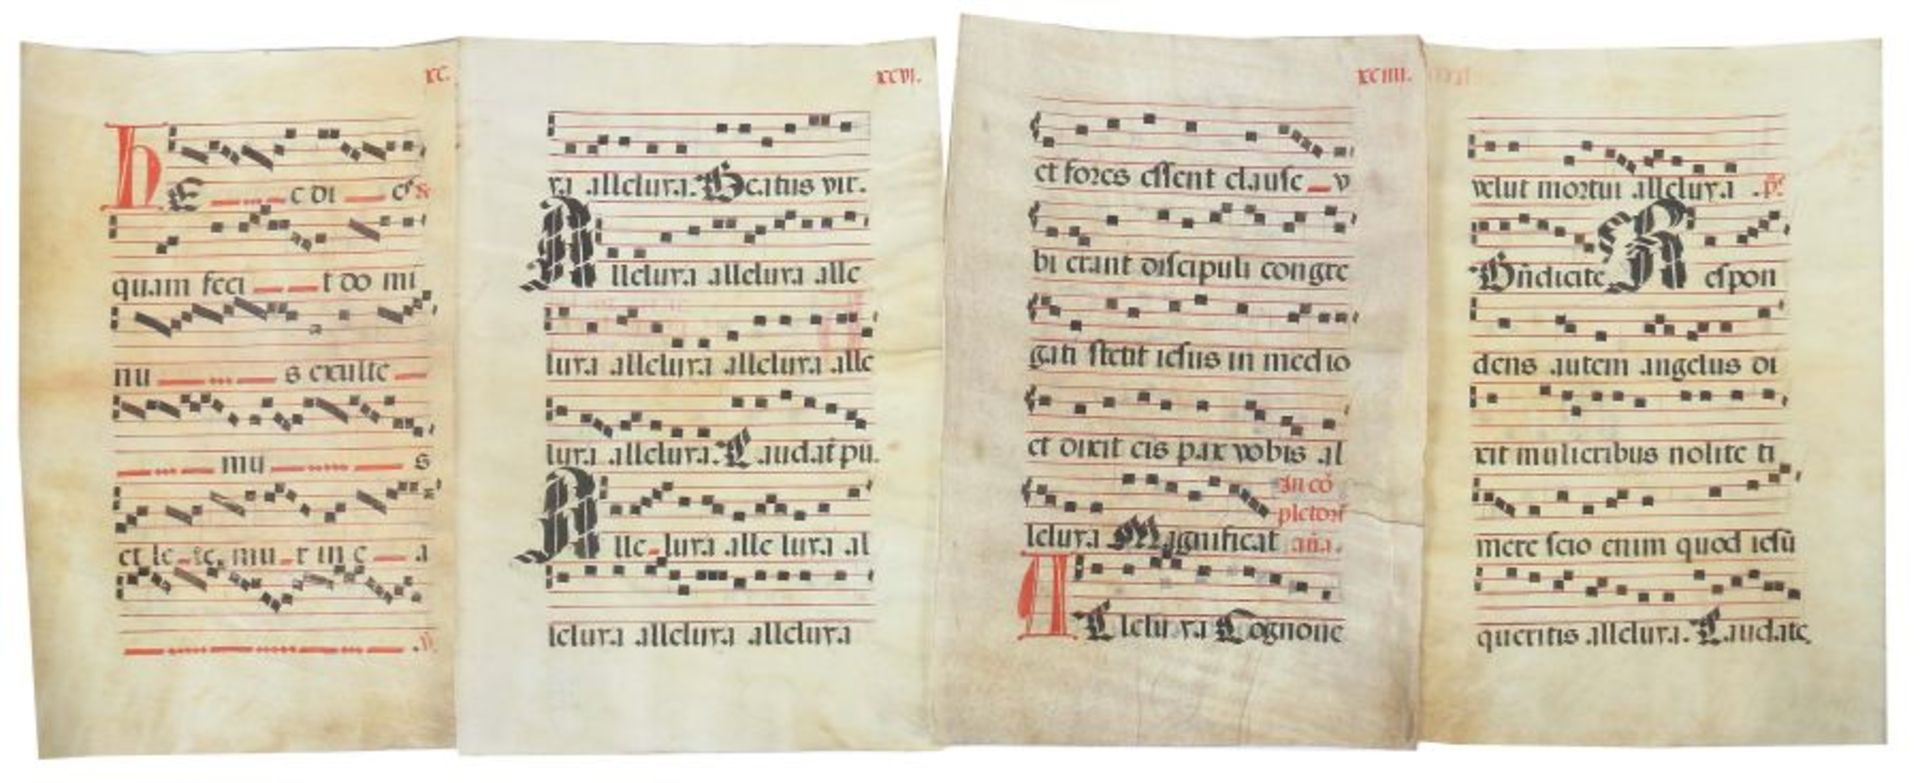 xc.
hE c di es
quam feci t do mi
nu s exulte
mu s
et le te mu r in e a
xcvi.
ya alleluya. Beatus vir.
Alleluya alleluya alle
luya alleluya alleluya alle
luya alleluya. Laudat pu.
Alle luya alle luya al
leluya alleluya alleluya
xciiii.
et fores essent clause v
bi erant discipuli congre
gati stetit iesus in medio
et dixit eis pax vobis al
leluya Magnificat In cō
pletorī aña.
ALleluya Cognoue
velut mortui alleluya . ps
Bñdicite Respon
dens autem angelus di
xit mulieribus nolite ti
mere scio enim quod iesū
queritis alleluya. Laudate.